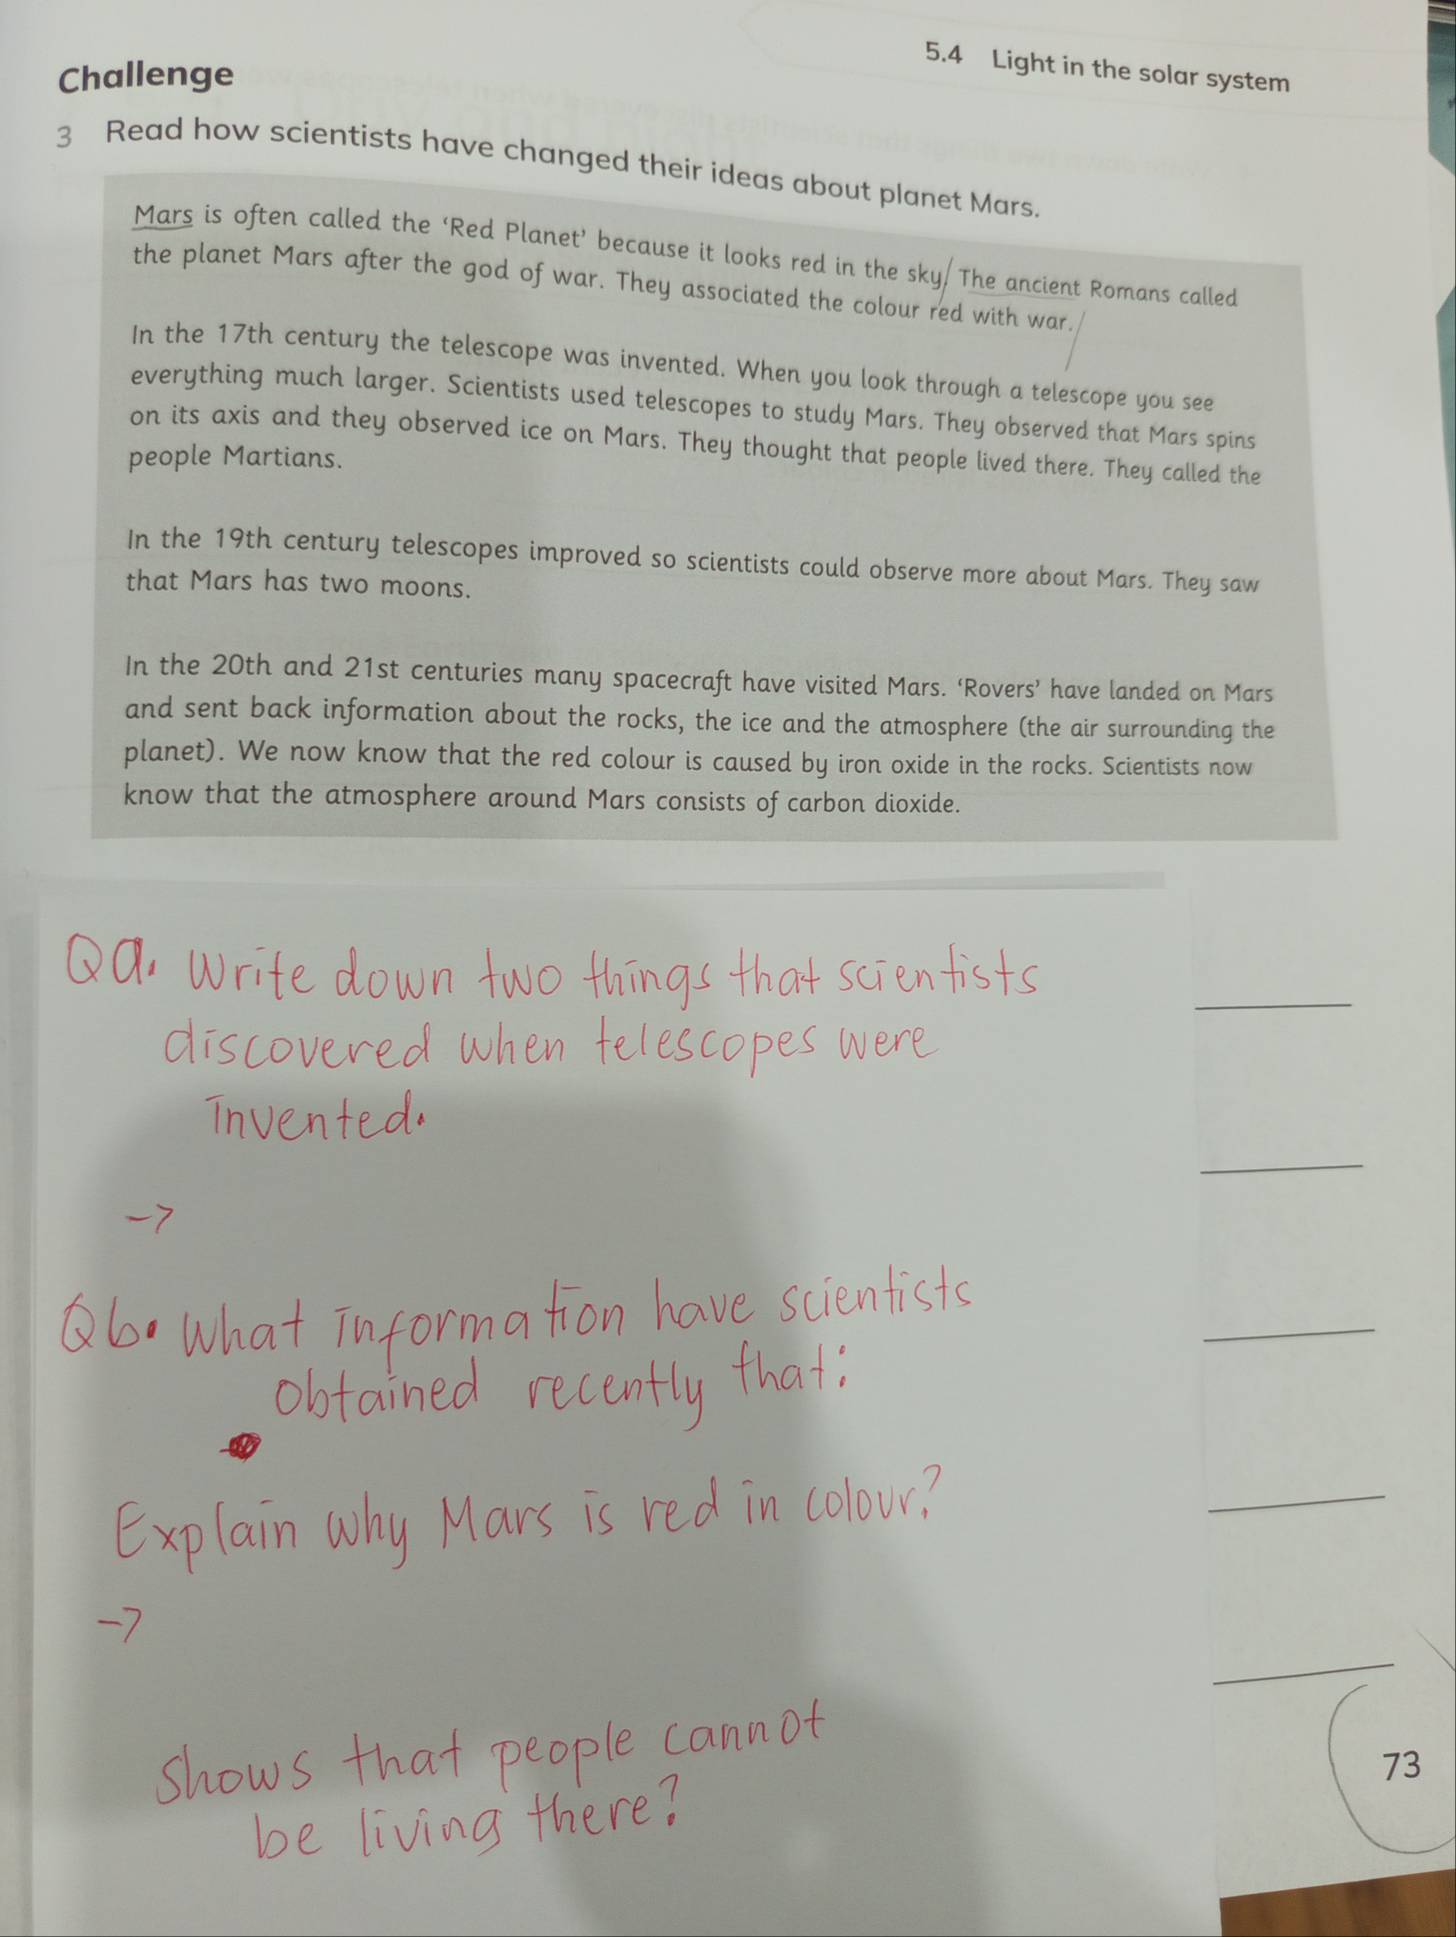 5.4 Light in the solar system
Challenge
3 Read how scientists have changed their ideas about planet Mars.
Mars is often called the ‘Red Planet’ because it looks red in the sky. The ancient Romans called
the planet Mars after the god of war. They associated the colour red with war.
In the 17th century the telescope was invented. When you look through a telescope you see
everything much larger. Scientists used telescopes to study Mars. They observed that Mars spins
on its axis and they observed ice on Mars. They thought that people lived there. They called the
people Martians.
In the 19th century telescopes improved so scientists could observe more about Mars. They saw
that Mars has two moons.
In the 20th and 21st centuries many spacecraft have visited Mars. ‘Rovers’ have landed on Mars
and sent back information about the rocks, the ice and the atmosphere (the air surrounding the
planet). We now know that the red colour is caused by iron oxide in the rocks. Scientists now
know that the atmosphere around Mars consists of carbon dioxide.
Qa. Write down two things that scientists
discovered when telescopes were
invented.
->
Qb. What information have scientists
obtained recently that:
Explain why Mars is red in colour?
->
shows that people cannot
be living there?
73